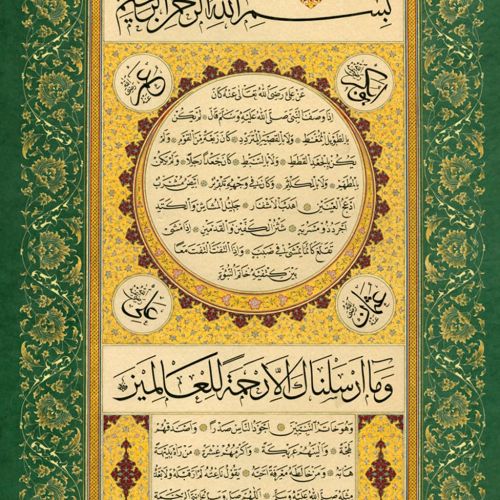 بِسْمِ اللهِ الرَّحْمٰنِ الرَّحِيمِ
ابو بكر
عمر
عَنْ عَلِيٍّ رَضِيَ اللهُ تَعَالٰى عَنْهُ كَانَ
اِذَا وَصَفَ النَّبِيَّ صَلَّى اللهُ عَلَيْهِ وَسَلَّمَ قَالَ لَمْ يَكُنْ
بِالطَّوِيلِ الْمُمَّغِطِ وَلَا بِالْقَصِيرِ الْمُتَرَدِّدِ كَانَ رَبْعَةً مِنَ الْقَوْمِ وَلَمْ
يَكُنْ بِالْجَعْدِ الْقَطَطِ وَلَا بِالسَّبِطِ كَانَ جَعْدًا رَجِلًا وَلَمْ يَكُنْ
بِالْمُطَهَّمِ وَلَا بِالْمُكَلْثَمِ وَكَانَ فِي وَجْهِهِ تَدْوِيرٌ اَبْيَضُ مُشْرَبٌ
اَدْعَجُ الْعَيْنَيْنِ اَهْدَبُ الْاَشْفَارِ جَلِيلُ الْمُشَاشِ وَالْكَتَدِ
اَجْرَدُ ذُو مَسْرُبَةٍ شَثْنُ الْكَفَّيْنِ وَالْقَدَمَيْنِ اِذَا مَشٰى
تَقَلَّعَ كَاَنَّمَا يَمْشِي فِي صَبَبٍ وَاِذَا الْتَفَتَ الْتَفَتَ مَعًا
بَيْنَ كَتِفَيْهِ خَاتَمُ النُّبُوَّةِ
عثمان
علي
وَمَا اَرْسَلْنَاكَ اِلَّا رَحْمَةً لِلْعَالَمِينَ
وَهُوَ خَاتَمُ النَّبِيِّينَ اَجْوَدُ النَّاسِ صَدْرًا وَاَصْدَقُهُمْ
لَهْجَةً وَاَلْيَنُهُمْ عَرِيكَةً وَاَكْرَمُهُمْ عِشْرَةً مَنْ رَاٰهُ بَدِيهَةً
هَابَهُ وَمَنْ خَالَطَهُ مَعْرِفَةً اَحَبَّهُ يَقُولُ نَاعِتُهُ لَمْ اَرَ قَبْلَهُ وَلَا بَعْدَهُ
مِثْلَهُ صَلَّى اللهُ عَلَيْهِ وَسَلَّمَ اللّٰهُمَّ صَلِّ